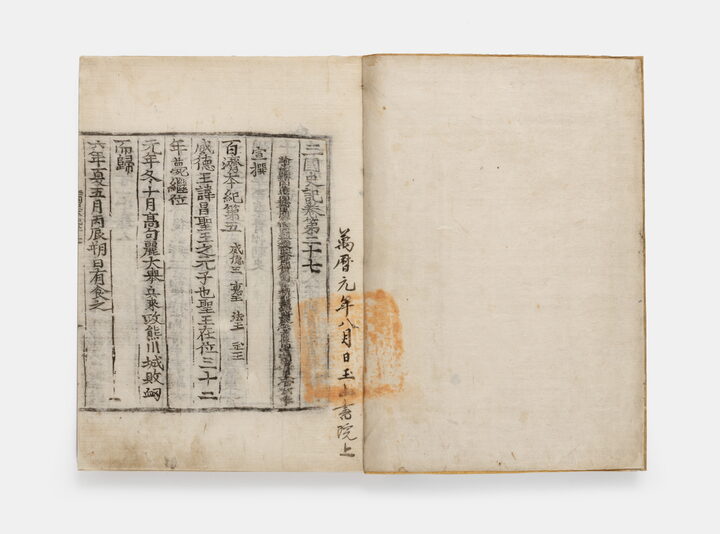 萬曆元年八月日玉山書院上
三國史記卷第二十七
宣撰
百濟本紀第五 威德王 惠王 法王 武王
威德王諱昌聖王之元子也聖王在位三十二
年薨繼位
元年冬十月高句麗大舉兵來攻熊川城敗衂
而歸
六年夏五月丙辰朔日有食之